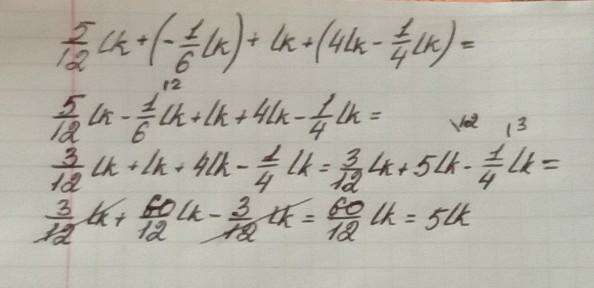 5/12 lk + (- 1/6 lk) + lk + (4lk - 1/4 lk) =
5/12 lk - 1/6 \2 lk + lk + 4lk - 1/4 lk =
3/12 lk + lk + 4lk - 1/4 lk = 3/12 lk + 5lk \12 - 1/4 \3 lk =
3/12 lk + 60/12 lk - 3/12 lk = 60/12 lk = 5lk